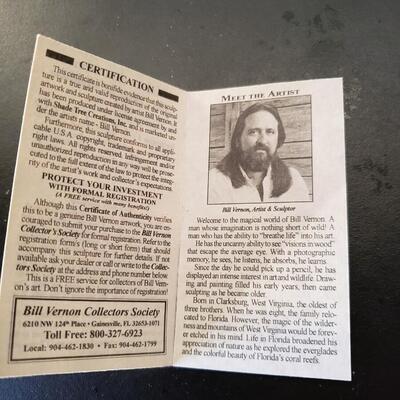 CERTIFICATION
This certificate is bonifide evidence that this sculp-
ture is a true and valid reproduction of the original
artwork and sculpture created by artist Bill Vernon. It
has been produced under license agreement by and
with Shade Tree Creations, Inc. and is marketed un-
der the artists name - Bill Vernon.
Furthermore, this sculpture conforms to all appli-
cable U.S.A. copyright, trademark and proprietary
right laws. All rights reserved. Infringement and/or
unauthorized reproduction in any way will be prose-
cuted to the full extent of the law to protect the integ-
rity of the artist's work and collector's expectations.
PROTECT YOUR INVESTMENT
WITH FORMAL REGISTRATION
(A FREE service with many benefits)
Although this Certificate of Authenticity verifies
this to be a genuine Bill Vernon artwork, you are en-
couraged to submit your purchase to the Bill Vernon
Collector's Society for formal registration. Refer to the
registration form/s (long or short form) that should
accompany this sculpture for further details. If not
available ask your dealer or call or write to the Collec-
tors Society at the address and phone number below.
This is a FREE service for collectors of Bill Vern-
on's art. Don't ignore the importance of registration!
Bill Vernon Collectors Society
6210 NW 124th Place • Gainesville, FL 32653-1071
Toll Free: 800-327-6923
Local: 904-462-1830 • Fax: 904-462-1799
MEET THE ARTIST
Bill Vernon, Artist & Sculptor
Welcome to the magical world of Bill Vernon. A
man whose imagination is nothing short of wild! A
man who has the ability to "breathe life" into his art.
He has the uncanny ability to see "visions in wood"
that escape the average eye. With a photographic
memory, he sees, he listens, he absorbs, he learns.
Since the day he could pick up a pencil, he has
displayed an intense interest in art and wildlife. Draw-
ing and painting filled his early years, then came
sculpting as he became older.
Born in Clarksburg, West Virginia, the oldest of
three brothers. When he was eight, the family relo-
cated to Florida. However, the magic of the wilder-
ness and mountains of West Virginia would be forev-
er etched in his mind. Life in Florida broadened his
appreciation of nature as he explored the everglades
and the colorful beauty of Florida's coral reefs.